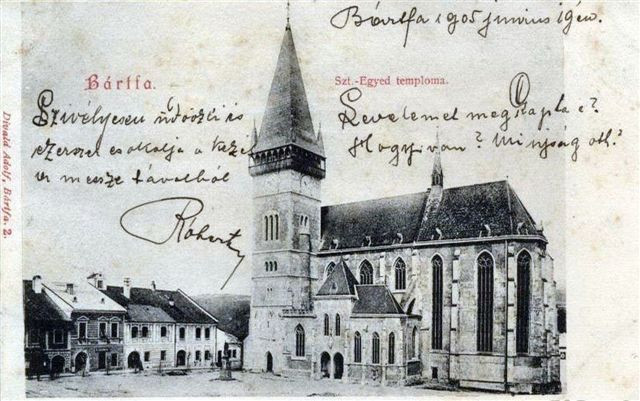 Bártfa 1905 junius 19én.
Bártfa.
Szt.-Egyed temploma.
Szivélyesen üdvözli és
ezerszer csokolja a
messze távolból
Robert
Levelemet megkapta e?
Hogy van? Mi ujság ott?
Divald Adolf, Bártfa. 2.